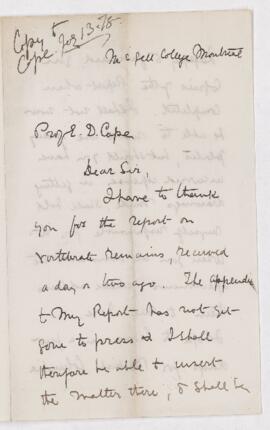 Copy to
Cope
Feb 13 - 78
McGill College Montreal
Prof E. D. Cope
Dear Sir,
I have to thank
you for the report on
Vertebrate remains, received
a day or two ago. The appendix
to my Report has not yet
gone to press & I shall
therefore be able to insert
the matter there, & shall be